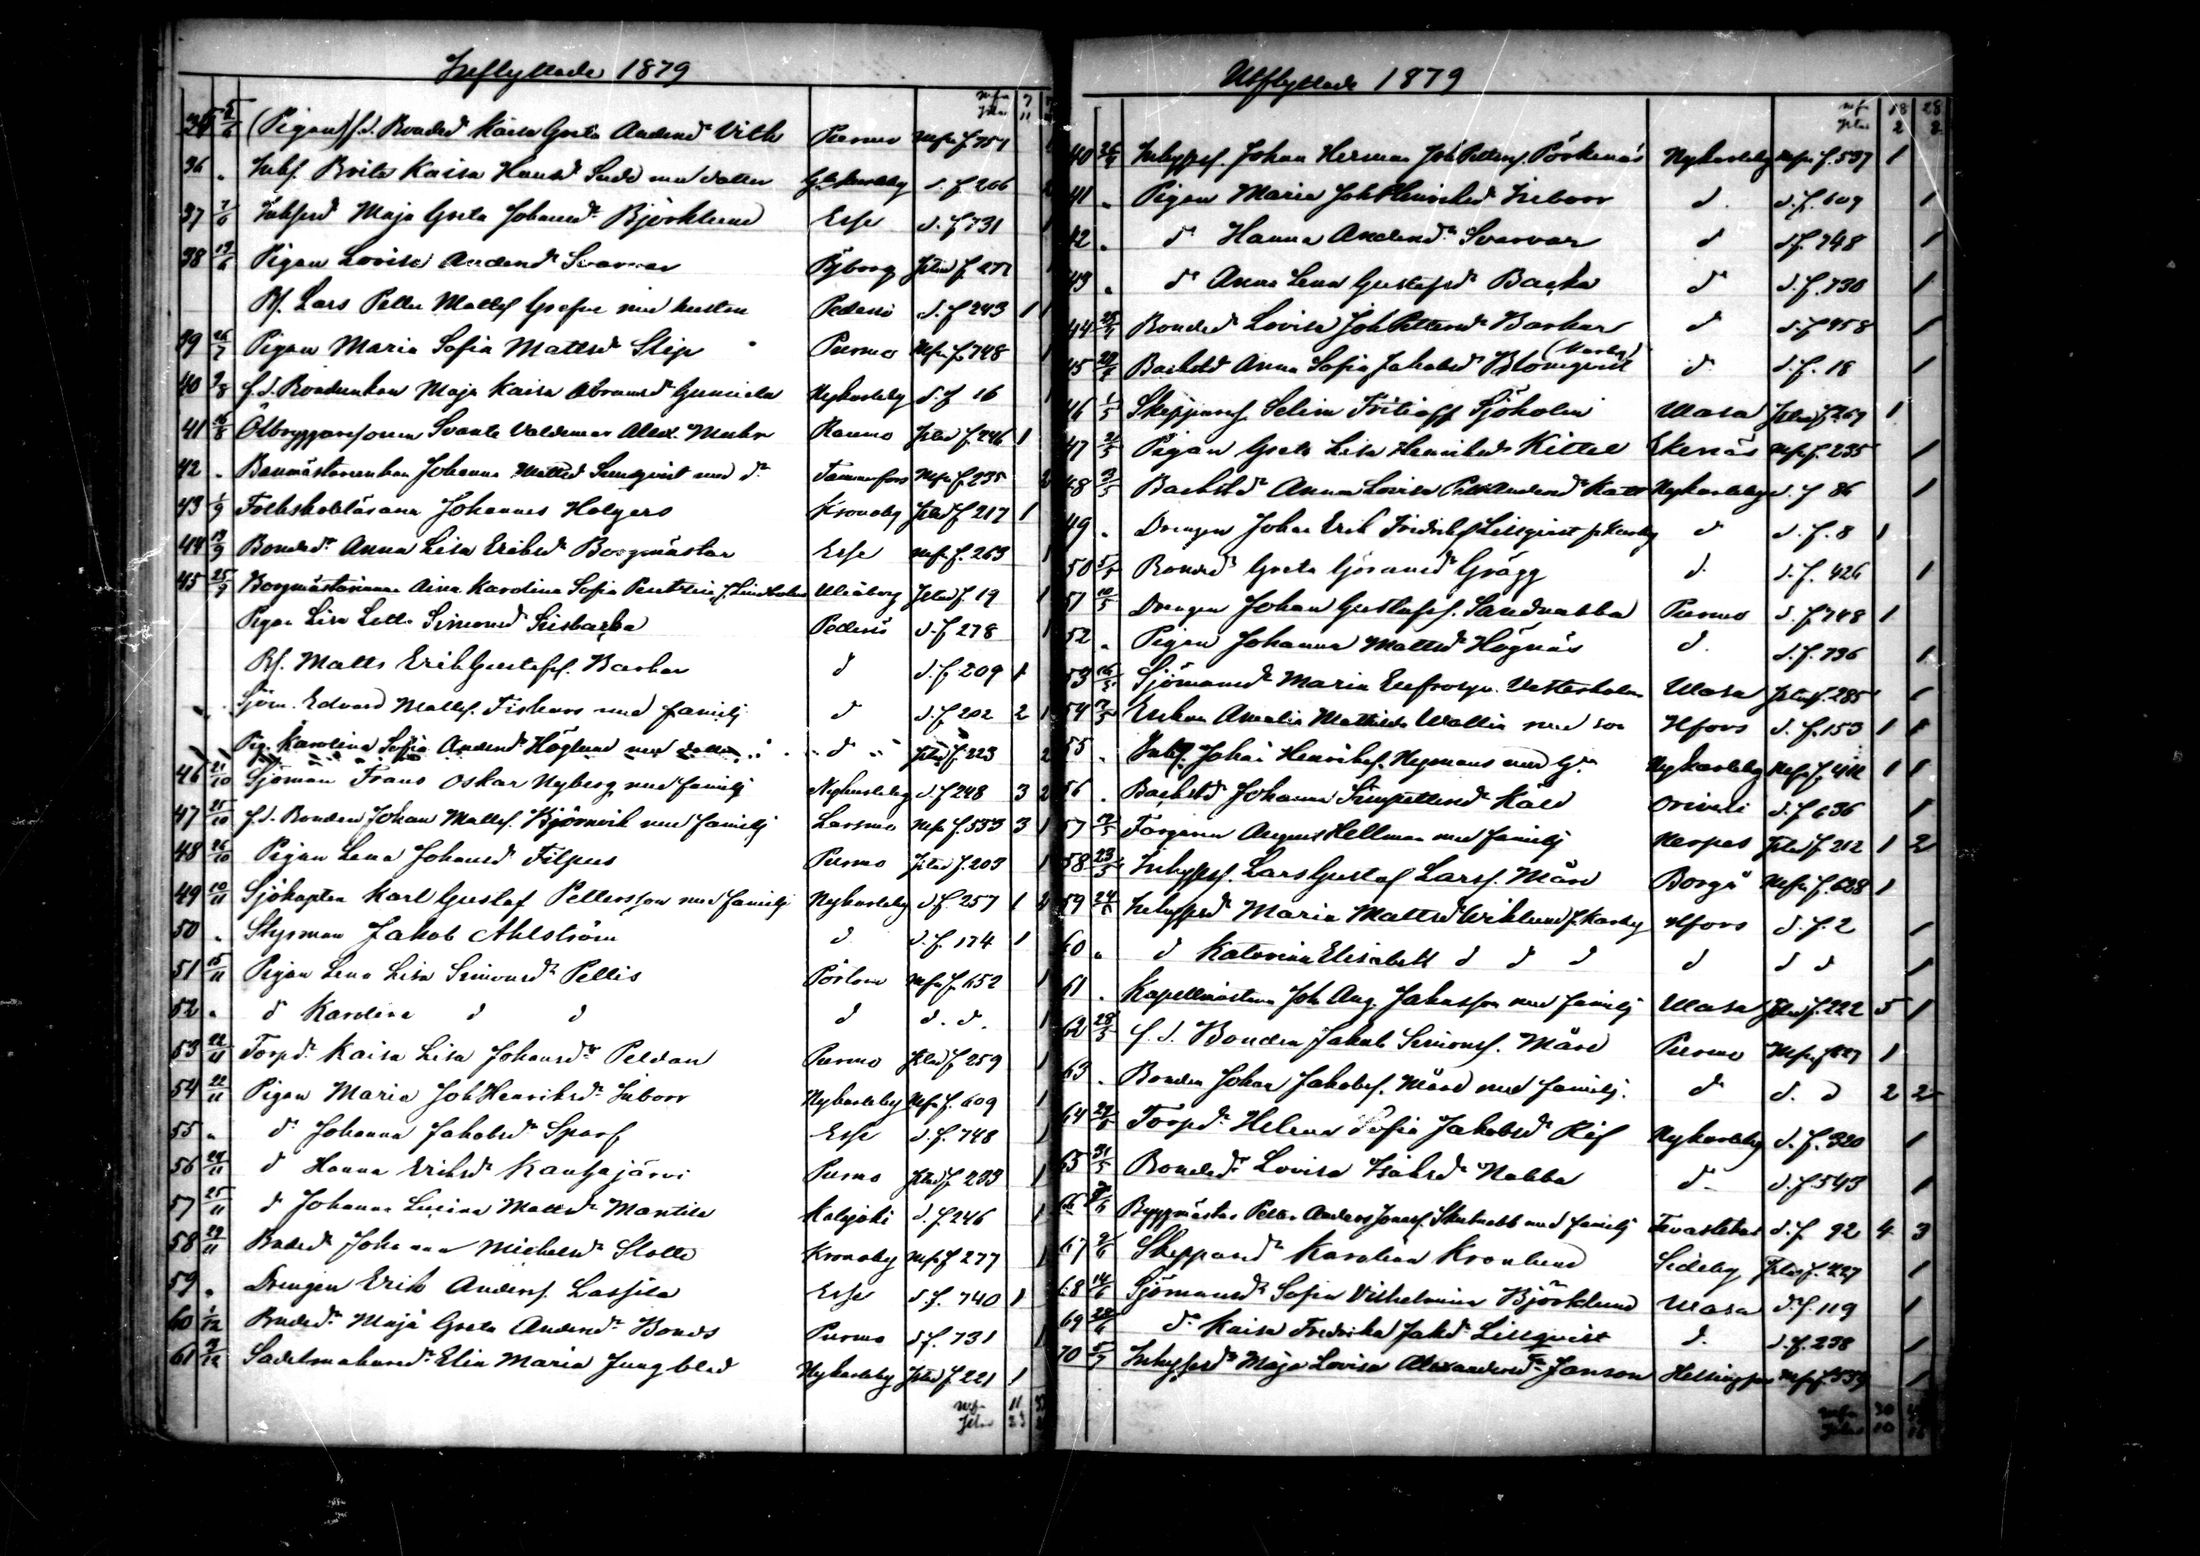 Inflyttade 1879
mfn 7
Jstad 11
35 5/6 (Pigan) f.d. Bonded Kaisa Greta Andersdr Vith Purmo Mfn f. 757
36 " Inhs. Brita Kaisa Hansd Sudd med dotter Gkarleby d. f 206 2
37 7/6 Inhysesd Maja Greta Johansdr Björklund Esse d. f 731 1
38 19/6 Pigan Lovisa Andersdr Svarvar Pyborg Jstad f. 277 1
Bf. Lars Petter Mattss Grefve med hustru Pedersö d. f 243 1 1
39 26/7 Pigan Maria Sofia Mattsd Slip Purmo Mfn f. 748 1
40 9/8 f.d. Bondenkan Maja Kaisa Abramsdr Gunnila Nykarleby d. f 16 1
41 16/8 Ölbryggaresonen Svante Valdemar Alex. Muhr Raumo Jstad f. 246 1
42 " Banmästareenkan Johanna Mattsd Sundqvist med dr Tammerfors Mfn f. 235 2
43 1/9 Folkskolläraren Johannes Holgers Kronoby Jstad f 217 1
44 13/9 Bonded Anna Lisa Eriksdr Borgmästar Esse Mfn f. 263 1
45 25/9 Borgmästarinnan Aina Karolina Sofia f. Lindholm Uleåborg Jstad f. 19 1
Pigan Lisa Lotta Simonsd Pedersö d. f 278 1
Bf. Matts Erik Gustafss. Backar d d. f 209 1
Sjöm. Edvard Mattss. Fiskars med familj d d. f 202 2 1
Pig. Karolina Sofia Andersdr Höglund med dotter " d " Jstad f 223 2
46 21/10 Sjöman Frans Oskar Nyberg med familj Nykarleby d. f 248 3 2
47 25/10 f.d. Bonden Johan Mattss. Björnvik med familj Larsmo Mfn f. 533 3 1
48 26/10 Pigan Lena Johansd Filpus Purmo Jstad f. 203 1
49 10/11 Sjökapten Karl Gustaf Pettersson med familj Nykarleby d. f. 257 1 2
50 " Styrman Jakob Ahlström d d. f. 174 1
51 15/11 Pigan Lena Lisa Simonsdr Pellis Pörtom Mfn f. 652 1
52 " d Karolina d d d d. d. 1
53 22/11 Torpdr Kaisa Lisa Johansdr Peldan Purmo Jstad f 259 1
54 22/11 Pigan Maria Joh Henriksdr Inborr Nykarleby Mfn f. 609 1
55 " d Johanna Jakobsdr Sparf Esse d. f. 748 1
56 24/11 d Hanna Eriksdr Kantojärvi Purmo Jstad f 233 1
57 25/11 d Johanna Lucina Mattsdr Mantila Kalajoki d. f 246 1
58 29/11 Bonded Johanna Michelsdr Slotte Kronoby Mfn f 277 1
59 " Drengen Erik Anderss. Lassila Esse d. f. 740 1
60 1/12 Bonded Maja Greta Andersdr Bonds Purmo d. f. 731 1
61 9/12 Sadelmakaredr Elin Maria Jungblad Nykarleby Jstad f. 221 1
mfn 11
Jstad 23
Utflyttade 1879
mfn 18 28
Jstad 2 8
40 26/4 Inhysess. Johan Herman Joh Petterss. Pörkenäs Nykarleby Mfn f. 537 1
41 " Pigan Maria Joh Henriksd Inborr d. d. f. 609 1
42 " d Hanna Andersdr Svarvar d d. f. 748 1
43 " d Anna Lena Gustafsdr Backa d d. f. 730 1
44 Bonded Lovisa Joh Pettersdr Backar d d. f 458 1
45 Backstd Anna Sofia Jakobsdr Blomqvist (Karby) d d. f. 18 1
46 1/5 Skepparess Selim Fritioff Sjöholm Wasa Jstad f. 269 1
47 Pigan Greta Lisa Henriksdr Kittel Ekenäs Mfn f. 235 1
48 Backstd Anna Lovisa Andersdr Katt Nykarleby d. f 86 1
49 " Drengen Johan Erik Fredrikss Lillqvist fr Karby d d. f. 8 1
50 5/5 Bonded Greta Göransdr Grägg d. d. f. 426 1
51 10/5 Drengen Johan Gustafss. Sandnabba Purmo d. f 748 1
52 " Pigan Johanna Mattsdr Högnäs d. d. f. 736 1
53 16/5 Sjömansdr Maria Eufrosyn. Vesterholm Wasa Jstad f. 285 1
54 17/5 Enkan Amalia Mathilda Wallin med son Hfors d. f. 153 1 1
55 " Inhs. Johan Henrikss. Nymans med Nykarleby Mfn f. 1 1
56 " Backstd Johanna Simpettersdr Kåld Orivesi d. f 636 1
57 17/5 Fargaren August Hellman med familj Kerpes Jstad f. 212 1 2
58 23/5 Inhysess. Lars Gustaf Larss. Mård Borgå Mfn f. 628 1
59 24/5 Inhysesdr Maria Mattsdr Wiklund f. Karby Hfors d. f. 2 1
60 " d Katarina Elisabett d d d d d d 1
61 " Kapellmästaren Joh Aug. Jakobsson med familj Wasa Jstad f. 222 5 1
62 28/5 f.d. Bonden Jakob Simonss. Mård Purmo Mfn f 627 1
63 " Bonden Johan Jakobss. Mård med familj. d d. d 2 2
64 29/5 Torpdr Helena Sofia Jakobsdr Rif Nykarleby d. f. 320 1
65 31/5 Bonded Lovisa Isaksdr Nabba d d. f. 543 1
66 Byggmästar Petter Anders Jonass. Skutnabb med familj Tavastehus d. f 92 4 3
67 2/6 Skeppardr Karolina Kronlund Sideby Jstad f. 227 1
68 14/6 Sjömansdr Sofia Vilhelmina Björklund Wasa d. f. 119 1
69 28/6 d Kaisa Fredrika Jakdr Lillqvist d. d. f. 238 1
70 5/7 Inhysesdr Maja Lovisa Alexandersdr Janson Helsingfors Mfn f. 539 1
mfn 30
Jstad 10 16